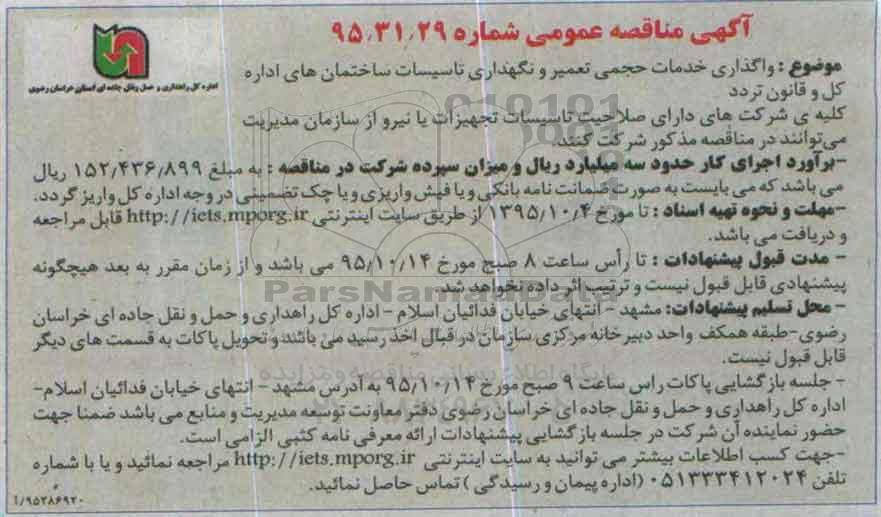 آگهی مناقصه عمومی شماره ۹۵٫۳۱٫۲۹
اداره کل راهداری و حمل ونقل جاده ای استان خراسان رضوی
موضوع : واگذاری خدمات حجمی تعمیر و نگهداری تاسیسات ساختمان های اداره
کل و قانون تردد
کلیه ی شرکت های دارای صلاحیت تاسیسات تجهیزات یا نیرو از سازمان مدیریت
می‌توانند در مناقصه مذکور شرکت کنند.
-برآورد اجرای کار حدود سه میلیارد ریال و میزان سپرده شرکت در مناقصه : به مبلغ ۱۵۲٫۴۳۶٫۸۹۹ ریال
می باشد که می بایست به صورت ضمانت نامه بانکی و یا فیش واریزی و یا چک تضمینی در وجه اداره کل واریز گردد.
-مهلت و نحوه تهیه اسناد : تا مورخ ۱۳۹۵٫۱۰٫۴ از طریق سایت اینترنتی http://iets.mporg.ir قابل مراجعه
و دریافت می باشد.
- مدت قبول پیشنهادات : تا رأس ساعت ۸ صبح مورخ ۹۵٫۱۰٫۱۴ می باشد و از زمان مقرر به بعد هیچگونه
پیشنهادی قابل قبول نیست و ترتیب اثر داده نخواهد شد.
ParsNamadData
- محل تسلیم پیشنهادات: مشهد - انتهای خیابان فدائیان اسلام - اداره کل راهداری و حمل و نقل جاده ای خراسان
رضوی-طبقه همکف واحد دبیرخانه مرکزی سازمان در قبال اخذ رسید می باشد و تحویل پاکات به قسمت های دیگر
قابل قبول نیست.
- جلسه بازگشایی پاکات راس ساعت ۹ صبح مورخ ۹۵٫۱۰٫۱۴ به آدرس مشهد - انتهای خیابان فدائیان اسلام-
اداره کل راهداری و حمل و نقل جاده ای خراسان رضوی دفتر معاونت توسعه مدیریت و منابع می باشد ضمنا جهت
حضور نماینده آن شرکت در جلسه بازگشایی پیشنهادات ارائه معرفی نامه کتبی الزامی است.
-جهت کسب اطلاعات بیشتر می توانید به سایت اینترنتی http://iets.mporg.ir مراجعه نمائید و یا با شماره
تلفن ۰۵۱۳۳۳۴۱۲۰۲۴ (اداره پیمان و رسیدگی ) تماس حاصل نمائید.
۹۵۲۸۶۹۲۰/آ